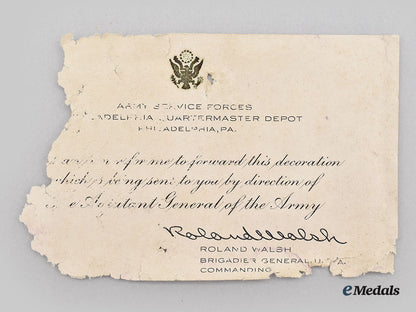 ARMY SERVICE FORCES
ADELPHIA QUARTERMASTER DEPOT
PHILADELPHIA, PA.
for me to forward this decoration
which is being sent to you by direction of
Adjutant General of the Army
Roland Walsh
ROLAND WALSH
BRIGADIER GENERAL, U.S.A.
COMMANDING
eMedals